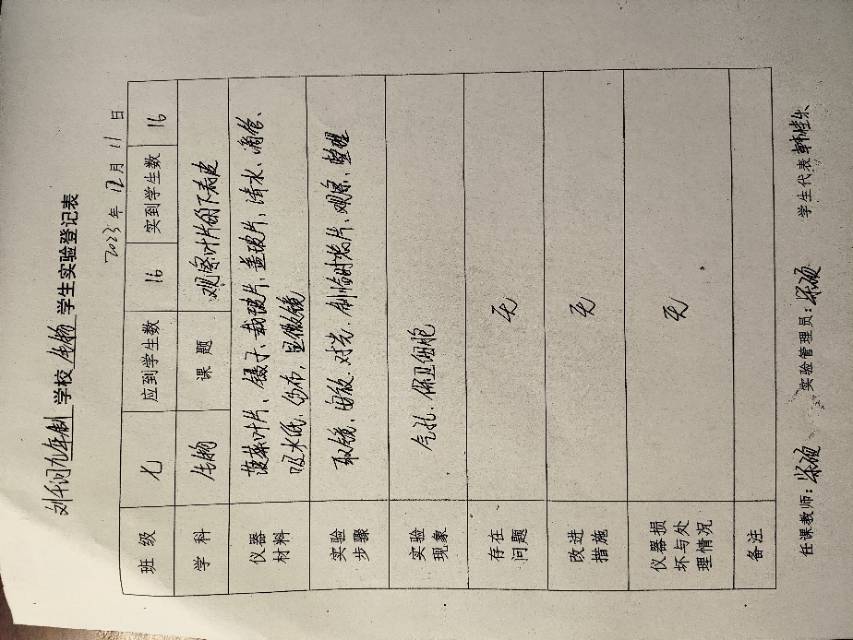 刘千河九年制学校 生物 学生实验登记表
2023年12月11日
班级 七 应到学生数 16 实到学生数 16
学科 生物 课题 观察叶片的下表皮
仪器材料 菠菜叶片、镊子、载玻片、盖玻片、清水、滴管、
吸水纸、纱布、显微镜
实验步骤 取镜、安放、对光、制临时装片、观察、整理
实验现象 气孔、保卫细胞
存在问题 无
改进措施 无
仪器损坏与处理情况 无
备注
任课教师: 实验管理员: 学生代表